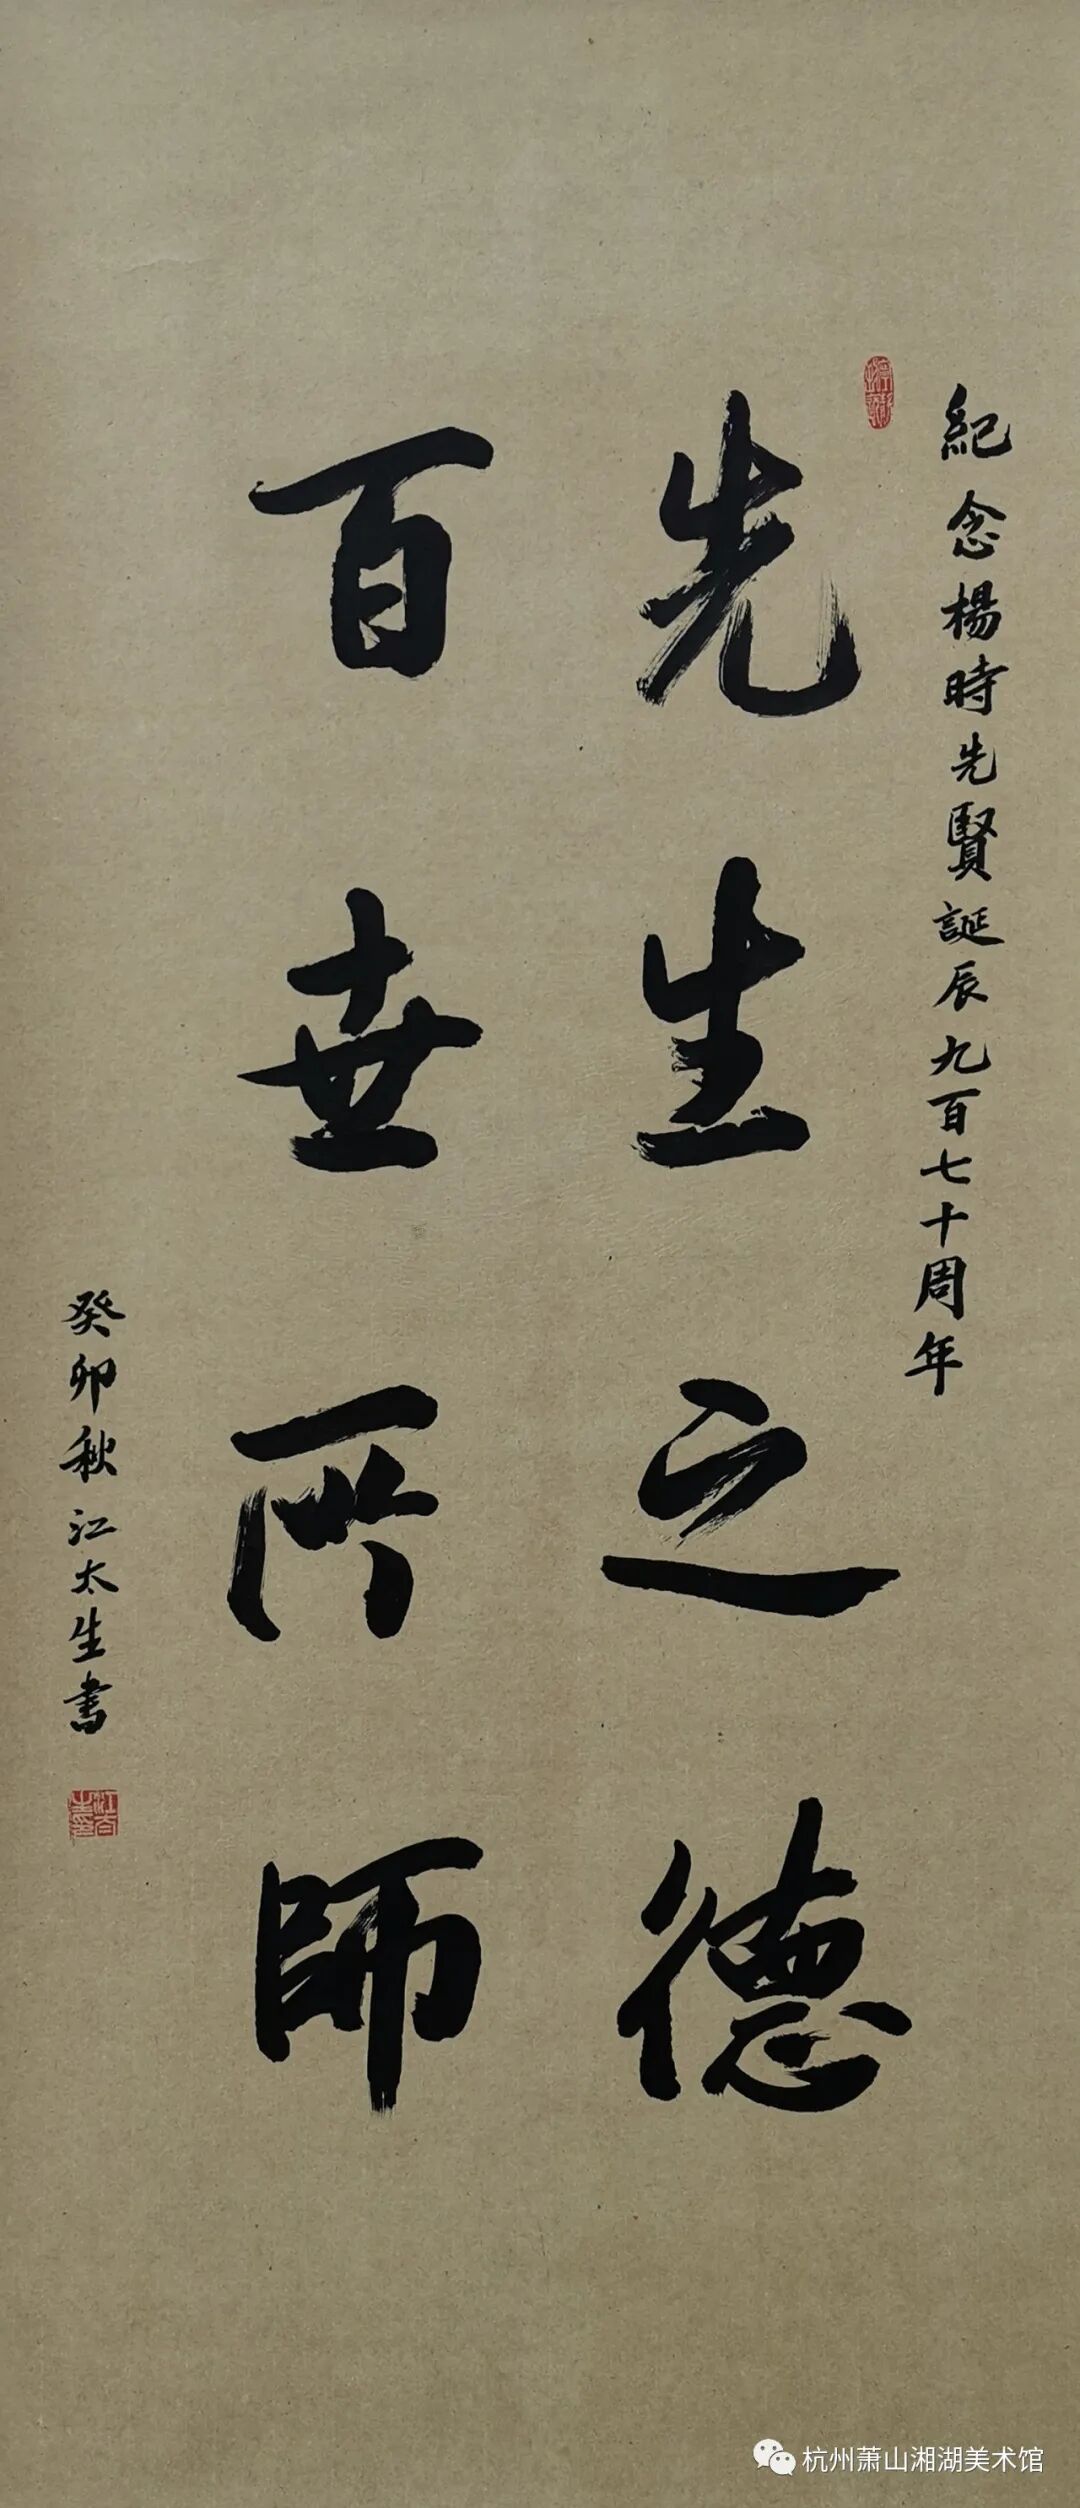 紀念楊時先賢誕辰九百七十周年
先生之德
百世所師
癸卯秋江太生书
江太生印
杭州萧山湘湖美术馆